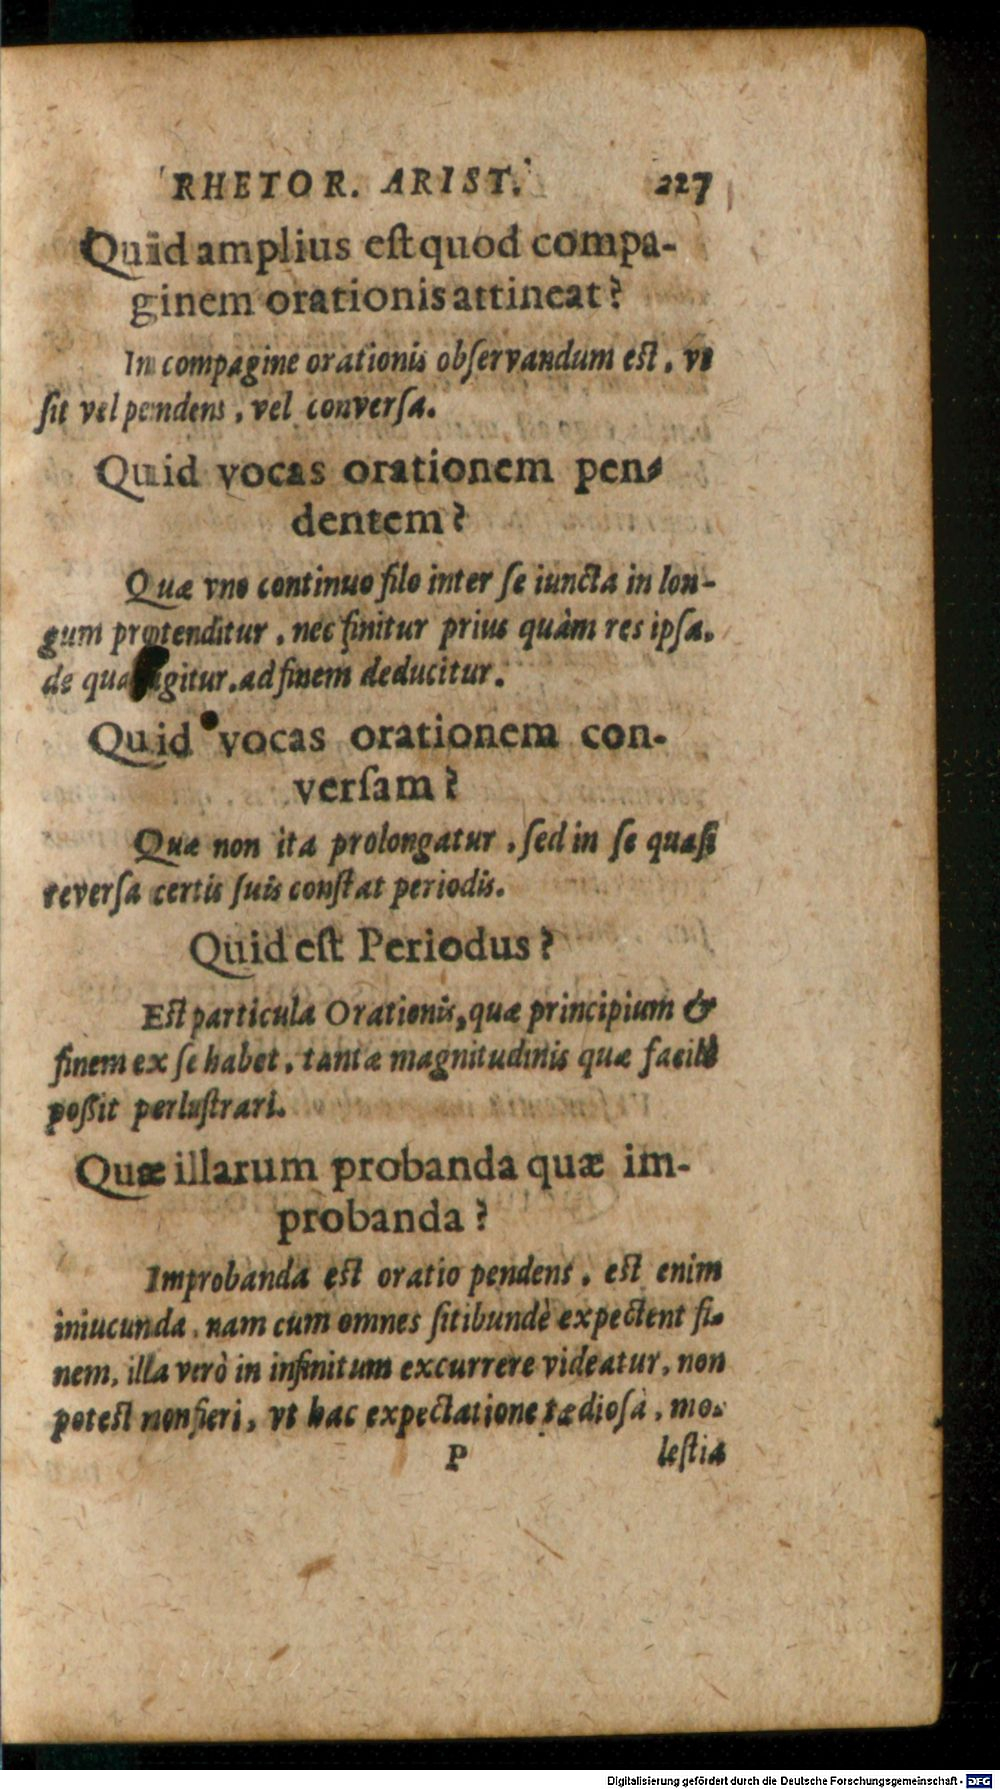 RHETOR. ARIST. 227
Quid amplius eſt quod compa-
ginem orationis attineat?
In compagine orationis obſervandum est, vt
ſit vel pendens, vel conversa.
Quid vocas orationem pen-
dentem?
Quæ vno continuo filo inter ſe iuncta in lon-
gum protenditur, nec finitur prius quàm res ipſa,
de qua agitur, ad finem deducitur.
Quid vocas orationem con-
verſam?
Quæ non ita prolongatur, ſed in ſe quaſi
reverſa certis ſuis conſtat periodis.
Quid eſt Periodus?
Est particula Orationis, quæ principium &
finem ex ſe habet, tantæ magnitudinis quæ facile
poßit perluſtrari.
Quæ illarum probanda quæ im-
probanda?
Improbanda est oratio pendens, est enim
iniucunda, nam cum omnes ſitibundè expectent fi-
nem, illa verò in infinitum excurrere videatur, non
potest non fieri, vt hac expectatione tædioſa, mo-
P leſtia
Digitalisierung gefördert durch die Deutsche Forschungsgemeinschaft - DFG